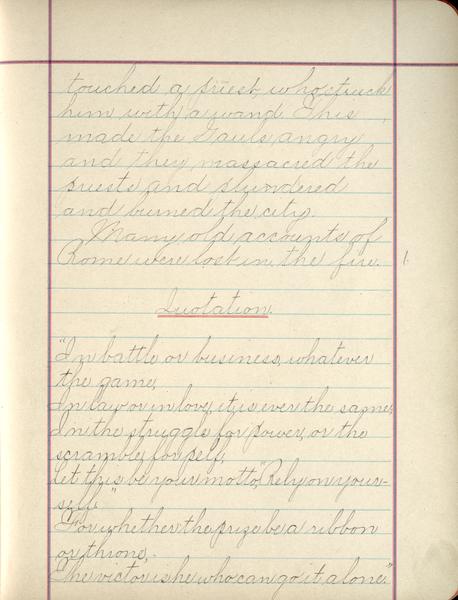 touched a priest, who struck
him with a wand. This
made the Gauls angry
and they massacred the
priests and plundered
and burned the city.
Many old accounts of
Rome were lost in the fire. 1.
Quotation.
"In battle or business, whatever
the game,
In law or in love, it is ever the same;
In the struggle for power, or the
scramble for pelf,
Let this be your motto, "Rely on your-
self."
"For whether the prize be a ribbon
or throne,
The victor is he who can go it alone."